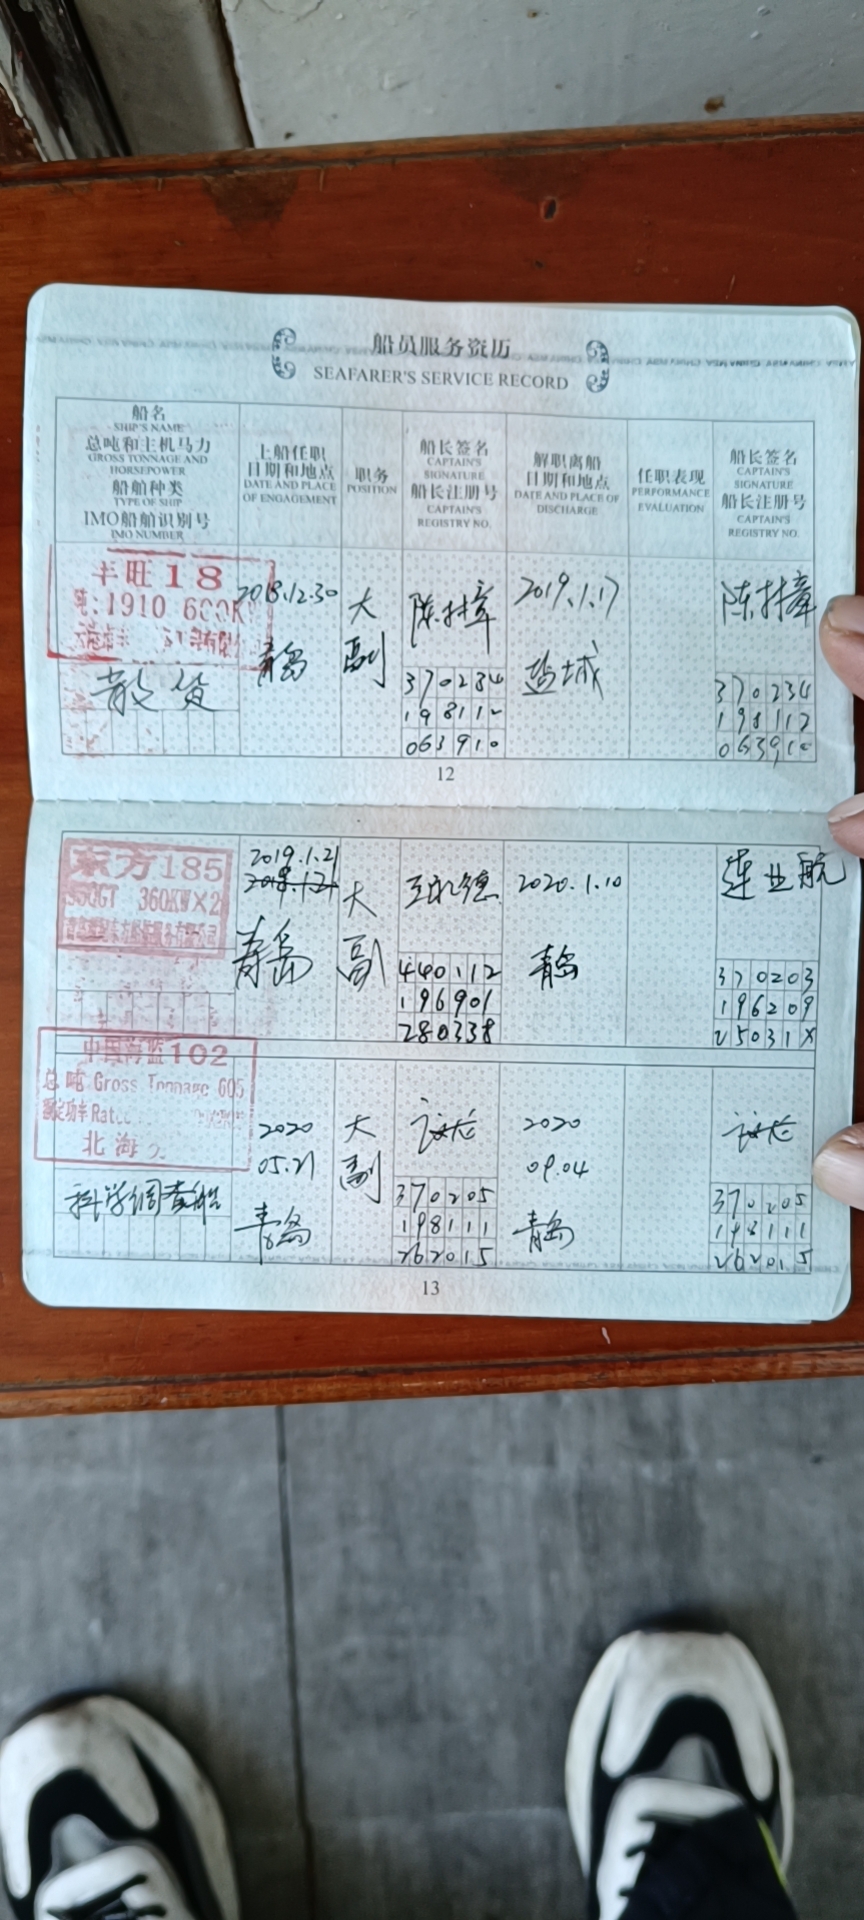 船员服务资历
SEAFARER'S SERVICE RECORD
船名
SHIP'S NAME
总吨和主机马力
GROSS TONNAGE AND
HORSEPOWER
船舶种类
TYPE OF SHIP
IMO船舶识别号
IMO NUMBER
上船任职
日期和地点
DATE AND PLACE
OF ENGAGEMENT
职务
POSITION
船长签名
CAPTAIN'S
SIGNATURE
船长注册号
CAPTAIN'S
REGISTRY NO.
解职离船
日期和地点
DATE AND PLACE OF
DISCHARGE
任职表现
PERFORMANCE
EVALUATION
船长签名
CAPTAIN'S
SIGNATURE
船长注册号
CAPTAIN'S
REGISTRY NO.
丰旺18
吨:1910 600K
散货
2018.12.30
青岛
大
副
370284
198112
063910
2019.1.17
盐城
370234
198112
063910
12
东方185
550GT 360KW×2
2019.1.21
青岛
大
副
440112
196901
280338
2020.1.10
青岛
连业航
370203
196209
25031X
中国海监102
总吨 Gross Tonnage 605
额定功率Rat
北海
科学调查船
2020
05.21
青岛
大
副
370205
198111
262015
2020
09.04
青岛
370205
198111
262015
13